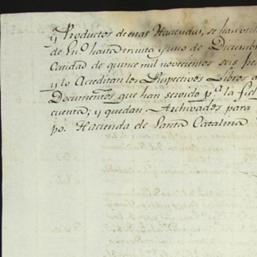 y Productos de esas Haciendas, se han
de En.º hasta treinta y uno de Diciem
Cantidad de quince mil novecientos seis pe
y lo Acreditan los Respectivos Libros
Documentos que han servido p.ª la fiel
cuenta; y quedan Archivados para
po. Hacienda de Santa Catalina